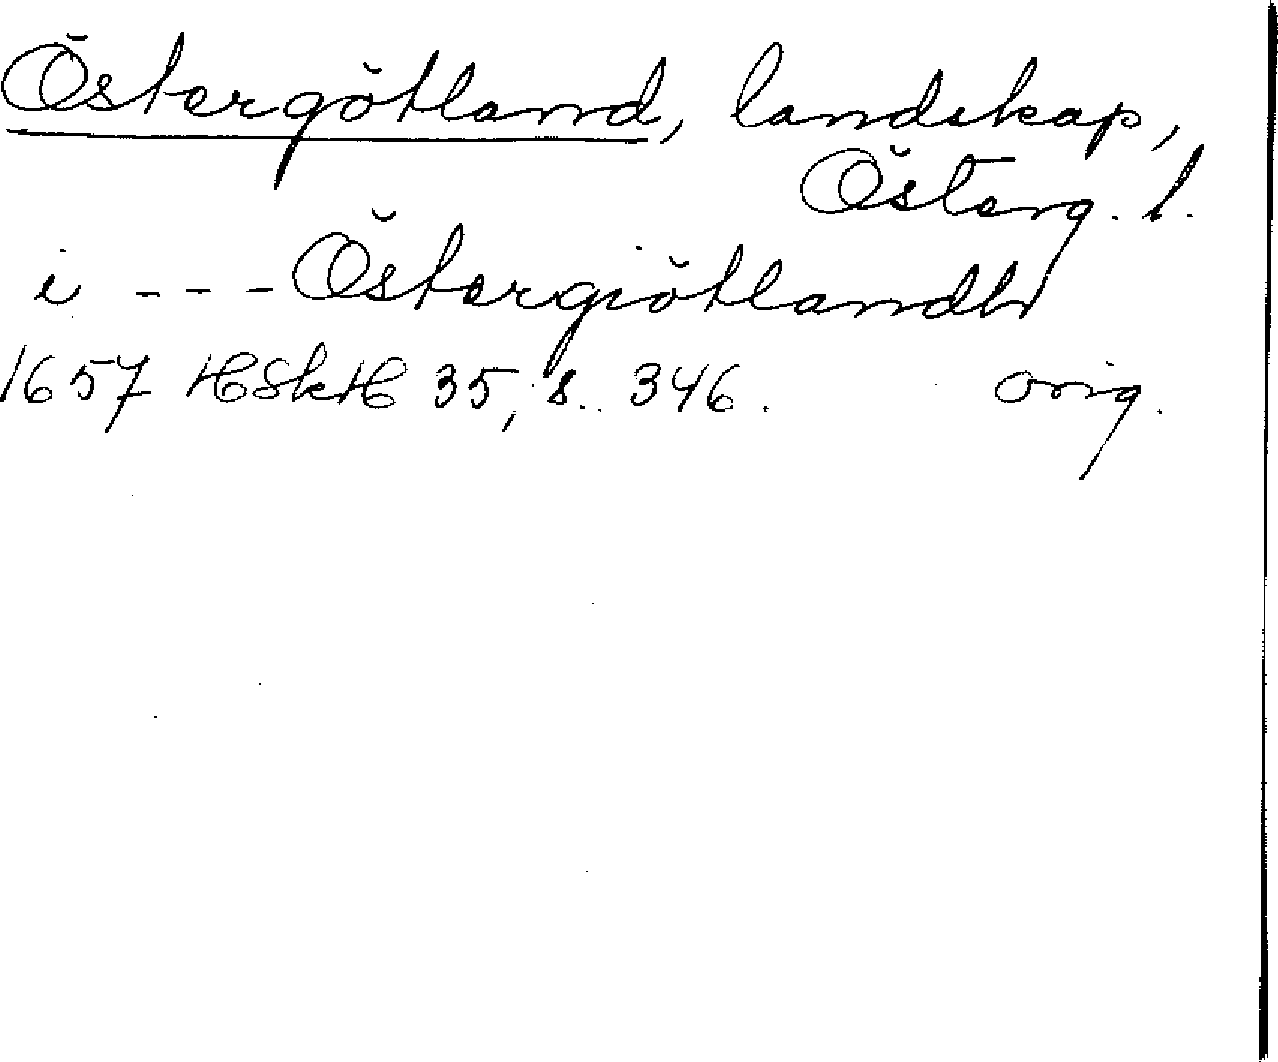 Östergötland, landskap,
Österg. l.
i - - - Östergiötlandh
1657 HSkH 35, s. 346. orig.